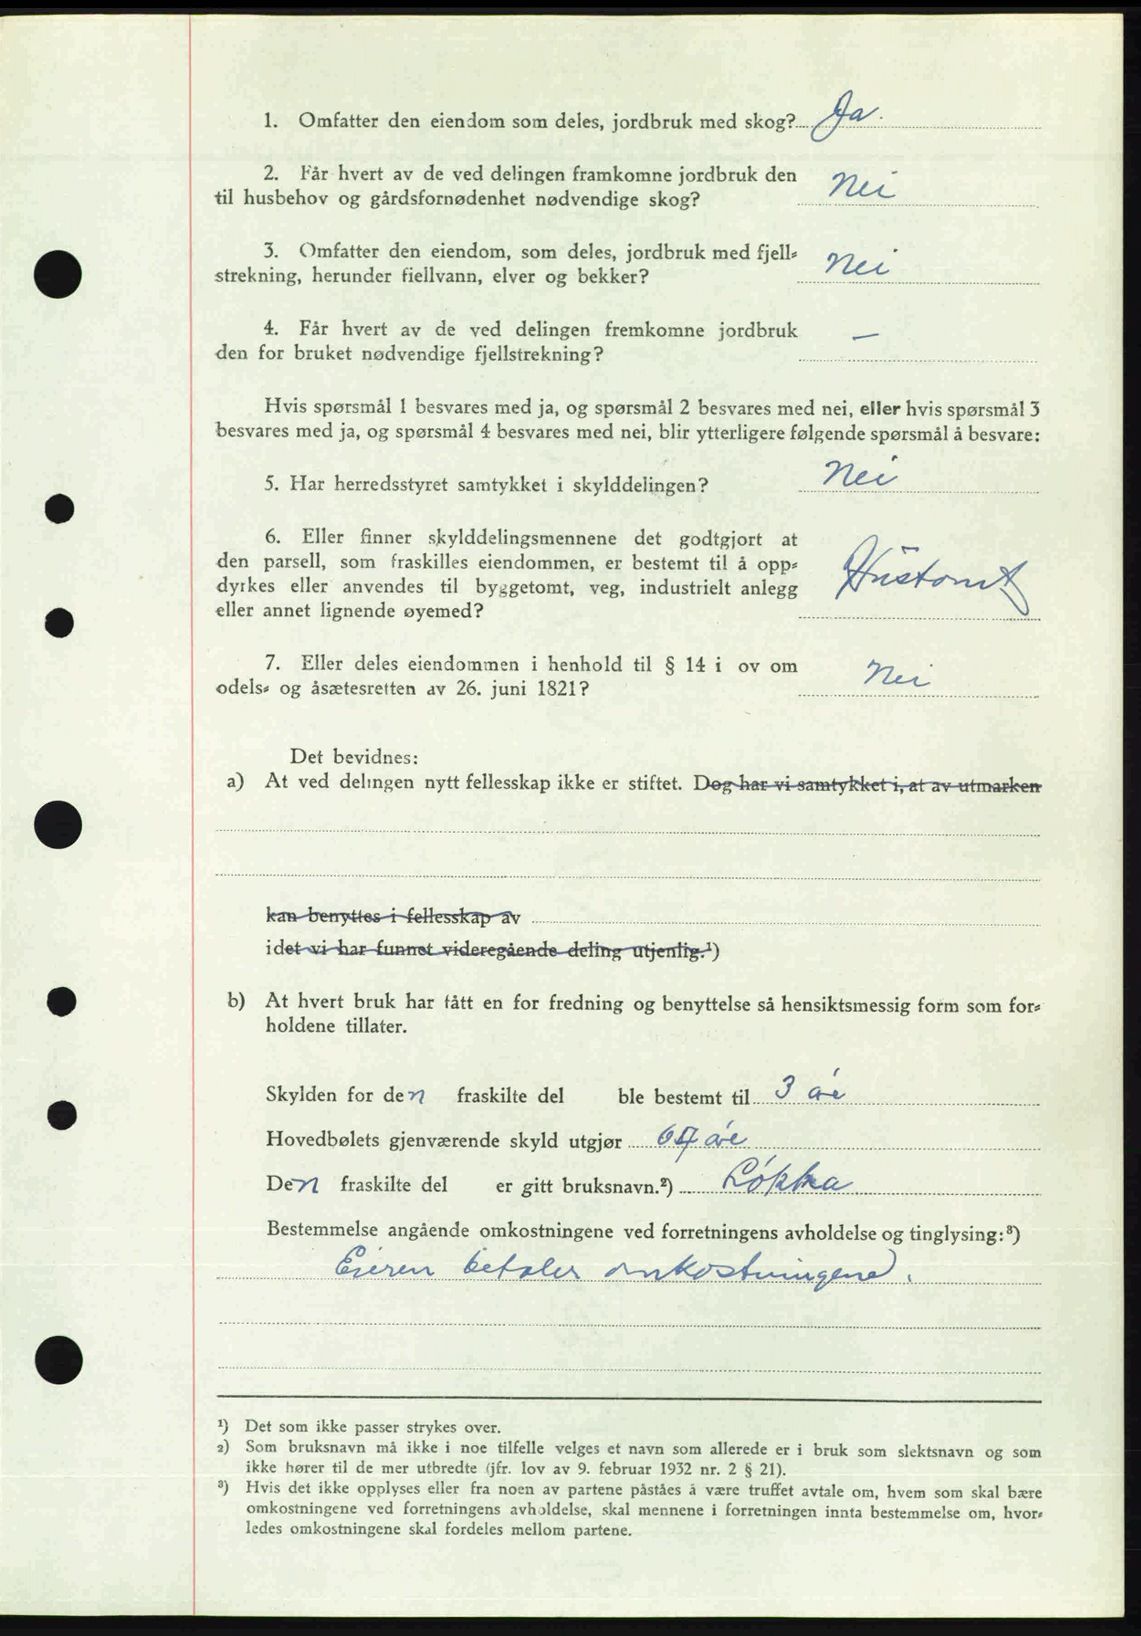 1. Omfatter den eiendom som deles, jordbruk med skog? Ja.
2. Får hvert av de ved delingen framkomne jordbruk den
til husbehov og gårdsfornødenhet nødvendige skog? Nei
3. Omfatter den eiendom, som deles, jordbruk med fjell-
strekning, herunder fiellvann, elver og bekker? Nei
4. Får hvert av de ved delingen fremkomne jordbruk
den for bruket nødvendige fjellstrekning? —
Hvis spørsmål 1 besvares med ja, og spørsmål 2 besvares med nei, eller hvis spørsmål 3
besvares med ja, og spørsmål 4 besvares med nei, blir ytterligere følgende spørsmål å besvare:
5. Har herredsstyret samtykket i skylddelingen? Nei
6. Eller finner skylddelingsmennene det godtgjort at
den parsell, som fraskilles eiendommen, er bestemt til å opp-
dyrkes eller anvendes til byggetomt, veg, industrielt anlegg Hustomt
eller annet lignende øyemed?
7. Eller deles eiendommen i henhold til § 14 i ov om
odels- og åsætesretten av 26. juni 1821? Nei
Det bevidnes:
a) At ved delingen nytt fellesskap ikke er stiftet. Dog har vi samtykket i, at av utmarken
kan benyttes i fellesskap av
idet vi har funnet videregående deling utjenlig.¹)
b) At hvert bruk har fått en for fredning og benyttelse så hensiktsmessig form som for-
holdene tillater.
Skylden for den fraskilte del ble bestemt til 3 øre
Hovedbølets gjenværende skyld utgjør øre
Den fraskilte del er gitt bruksnavn.²) Løkka
Bestemmelse angående omkostningene ved forretningens avholdelse og tinglysing:³)
Eieren betaler omkostningene.
¹) Det som ikke passer strykes over.
²) Som bruksnavn må ikke i noe tilfelle velges et navn som allerede er i bruk som slektsnavn og som
ikke hører til de mer utbredte (jfr. lov av 9. februar 1932 nr. 2 § 21).
³) Hvis det ikke opplyses eller fra noen av partene påståes å være truffet avtale om, hvem som skal bære
omkostningene ved forretningens avholdelse, skal mennene i forretningen innta bestemmelse om, hvor-
ledes omkostningene skal fordeles mellom partene.